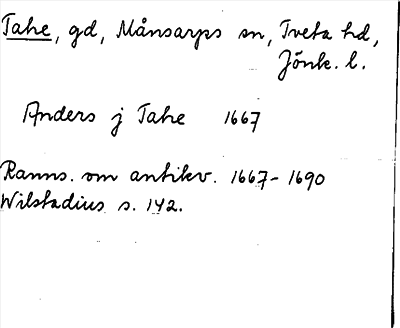 Tahe, gd, Månsarps sn, Tveta hd,
Jönk. l.
Anders j Tahe 1667
Ranns. om antikv. 1667-1690
Wilstadius s. 142.